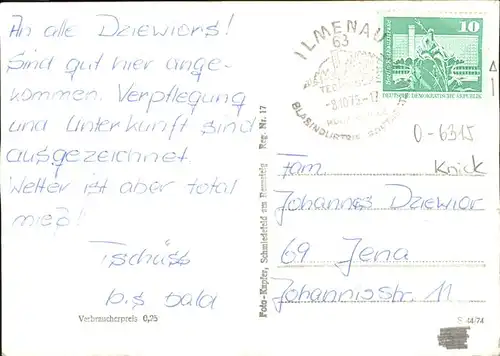 An alle Dziewiors!
Sind gut hier ange-
kommen. Verpflegung
und Unterkunft sind
ausgezeichnet.
Wetter ist aber total
mieß!
Tschüss
bis bald
Verbraucherpreis 0,25
Foto-Kapfer, Schmiedefeld am Rennsteig Reg. Nr. 17
ILMENAU
63
-8.10.75-17
10
DEUTSCHE DEMOKRATISCHE REPUBLIK
O-6315
Knick
Fam
Johannes Dziewior
69 Jena
Johannisstr. 11
S 44/74